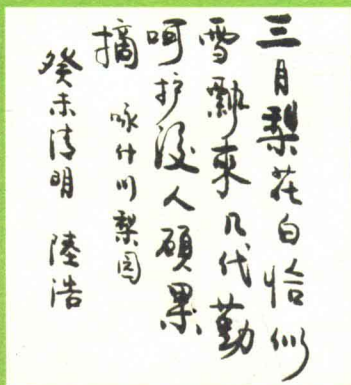 三月梨花白恰似
雪飘来几代勤
呵护后人硕果
摘 咏什川梨园
癸未清明 陆浩